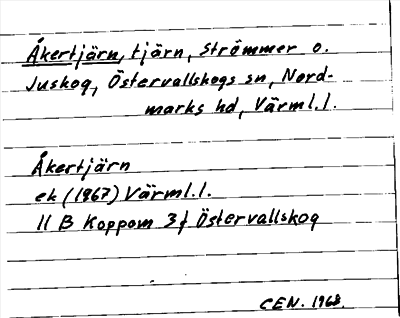 Åkertjärn, tjärn, Strömmer o.
Juskog, Östervallskogs sn, Nord-
marks hd, Värml.l.
Åkertjärn
ek (1967) Värml.l.
11 B Koppom 3f Östervallskog
CEN. 1968.